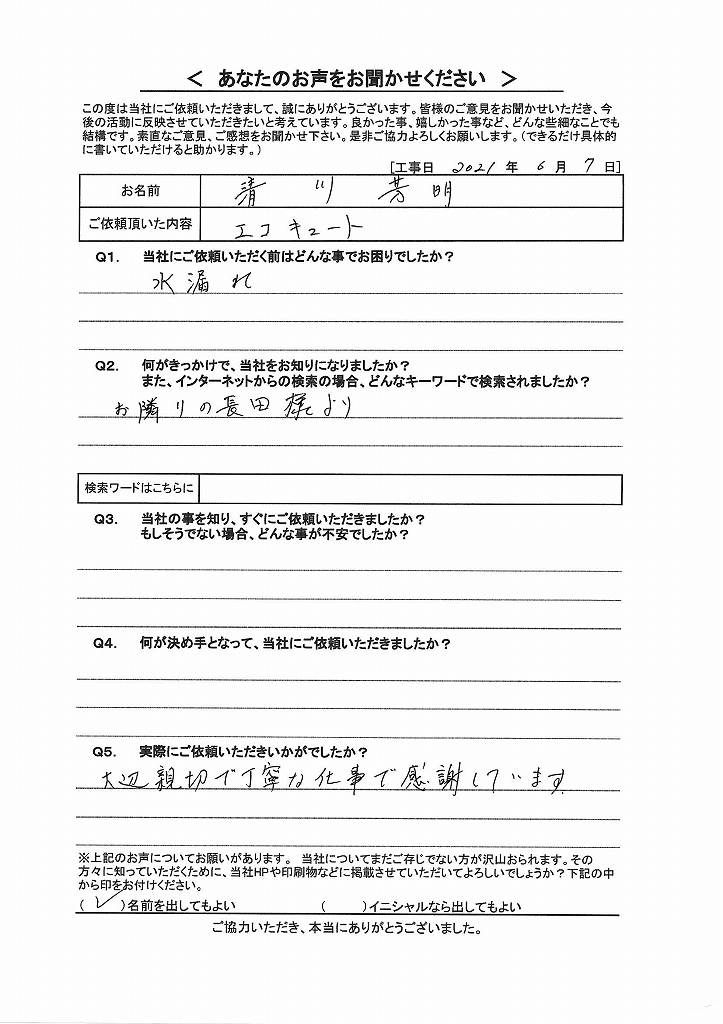 ＜ あなたのお声をお聞かせください ＞
この度は当社にご依頼いただきまして、誠にありがとうございます。皆様のご意見をお聞かせいただき、今
後の活動に反映させていただきたいと考えています。良かった事、嬉しかった事など、どんな些細なことでも
結構です。素直なご意見、ご感想をお聞かせ下さい。是非ご協力よろしくお願いします。（できるだけ具体的
に書いていただけると助かります。）
[工事日 2021 年 6 月 7 日]
お名前 清川 芳明
ご依頼頂いた内容 エコキュート
Q1. 当社にご依頼いただく前はどんな事でお困りでしたか？
水漏れ
Q2. 何がきっかけで、当社をお知りになりましたか？
また、インターネットからの検索の場合、どんなキーワードで検索されましたか？
お隣りの長田様より
検索ワードはこちらに
Q3. 当社の事を知り、すぐにご依頼いただきましたか？
もしそうでない場合、どんな事が不安でしたか？
Q4. 何が決め手となって、当社にご依頼いただきましたか？
Q5. 実際にご依頼いただきいかがでしたか？
大辺親切で丁寧な仕事で感謝しています
※上記のお声についてお願いがあります。 当社についてまだご存じでない方が沢山おられます。その
方々に知っていただくために、当社HPや印刷物などに掲載させていただいてよろしいでしょうか？下記の中
から印をお付けください。
（ ✓ ）名前を出してもよい （ ）イニシャルなら出してもよい
ご協力いただき、本当にありがとうございました。